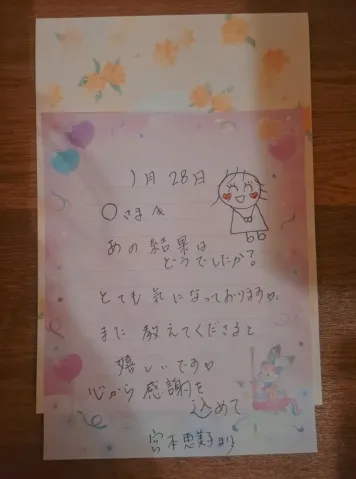 1月28日
○さまへ
あの結果は
どうでしたか?
とても気になっております♡。
また教えてくださると
嬉しいです♡
心から感謝を
込めて
宮本恵美子より